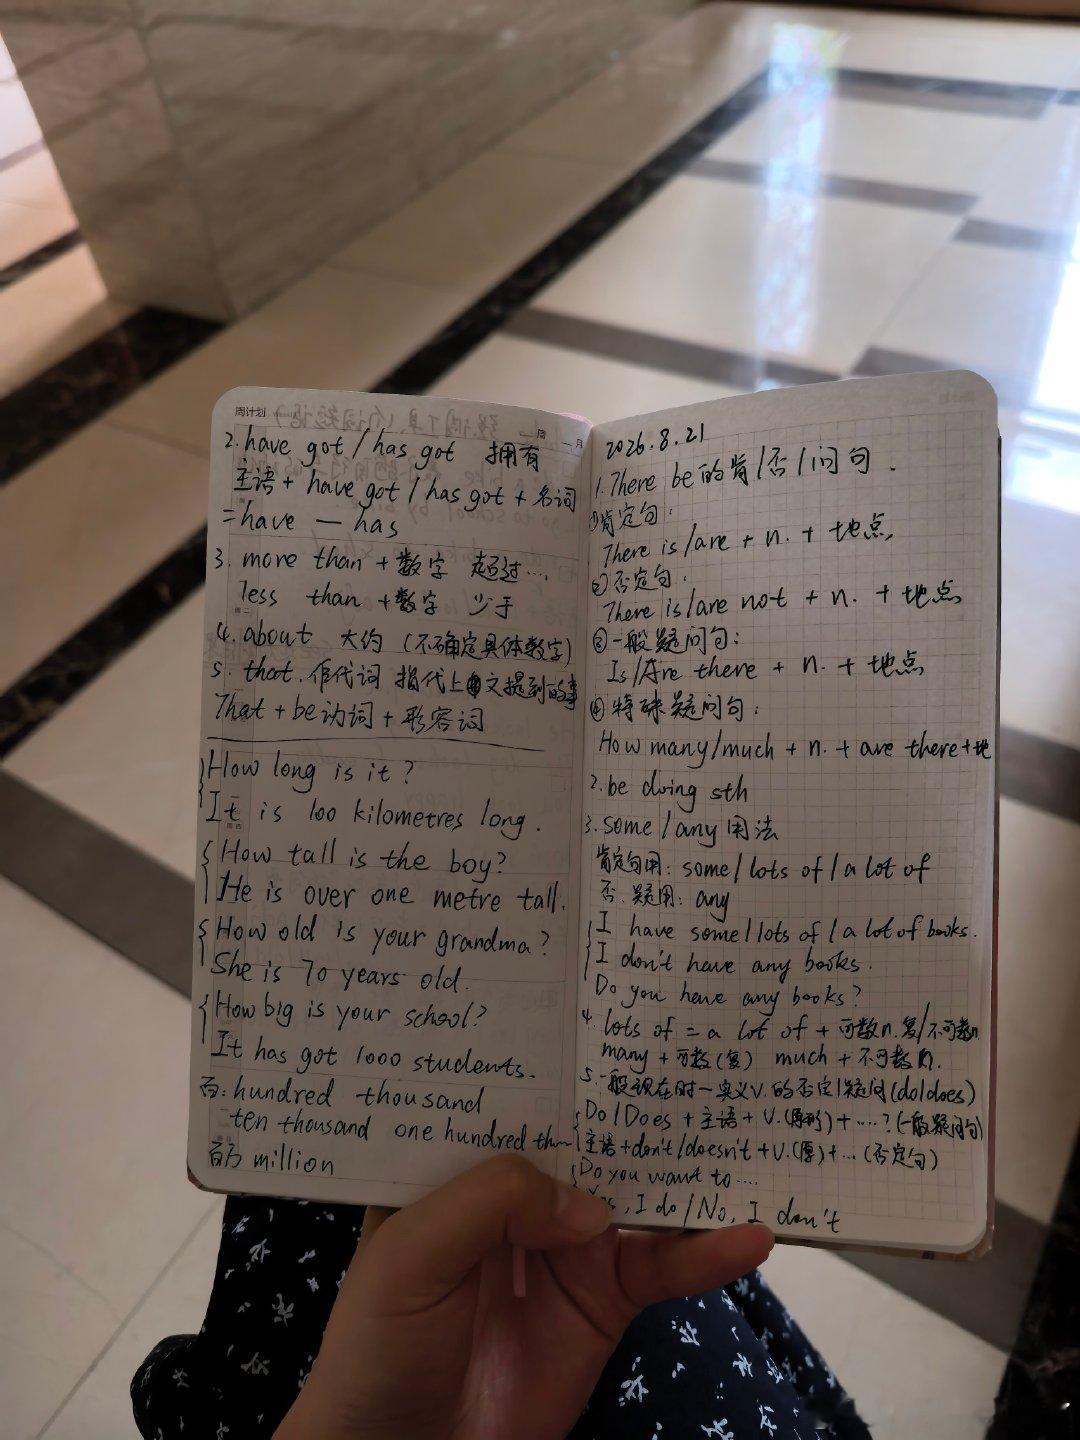 周计划
周 一月
2. have got / has got 拥有
主语 + have got / has got + 名词
= have — has
3. more than + 数字 超过...
less than + 数字 少于
4. about 大约 (不确定具体数字)
5. that. 作代词 指代上文提到的事
That + be动词 + 形容词
How long is it?
It is 100 kilometres long.
How tall is the boy?
He is over one metre tall.
How old is your grandma?
She is 70 years old.
How big is your school?
It has got 1000 students.
百: hundred thousand
ten thousand one hundred thou
百万 million
2026.8.21
1. There be的肯/否/问句.
①肯定句:
There is/are + n. + 地点
②否定句:
There is/are not + n. + 地点
③一般疑问句:
Is/Are there + n. + 地点
④特殊疑问句:
How many/much + n. + are there + 地
2. be doing sth
3. some/any 用法
肯定句用: some/lots of/a lot of
否.疑用: any
I have some/lots of/a lot of books.
I don't have any books.
Do you have any books?
4. lots of = a lot of + 可数n.复/不可数n
many + 可数(复) much + 不可数n.
5. 一般现在时—实义V.的否定/疑问(do/does)
Do/Does + 主语 + V.(原形) + ....? (一般疑问句)
主语 + don't/doesn't + V.(原) + ... (否定句)
Do you want to ....
Yes, I do / No, I don't